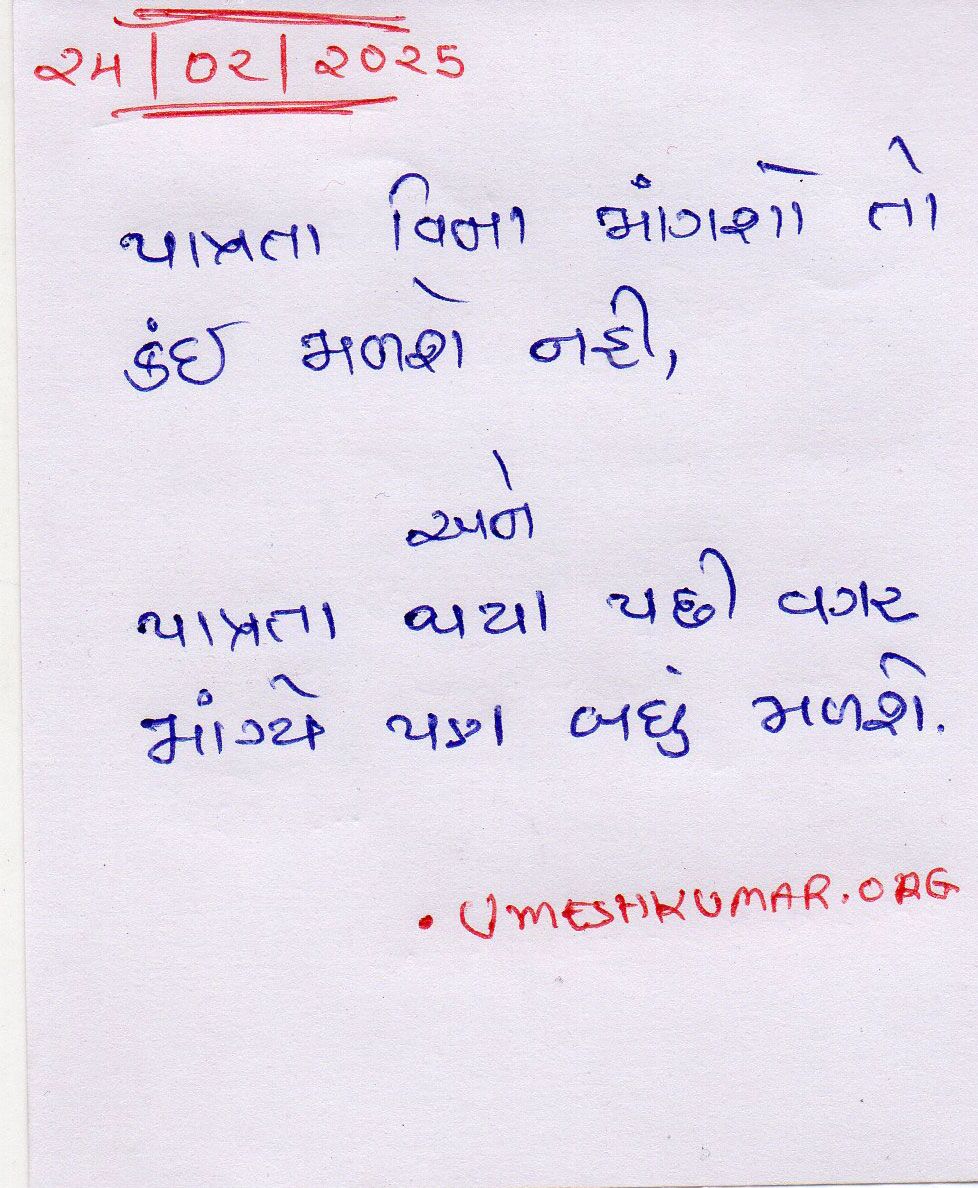 24/02/2025
પાત્રતા વિના માંગશો તો
કંઈ મળશે નહી,
અને
પાત્રતા થયા પછી વગર
માંગ્યે પણ બધું મળશે.
. UMESHKUMAR.ORG